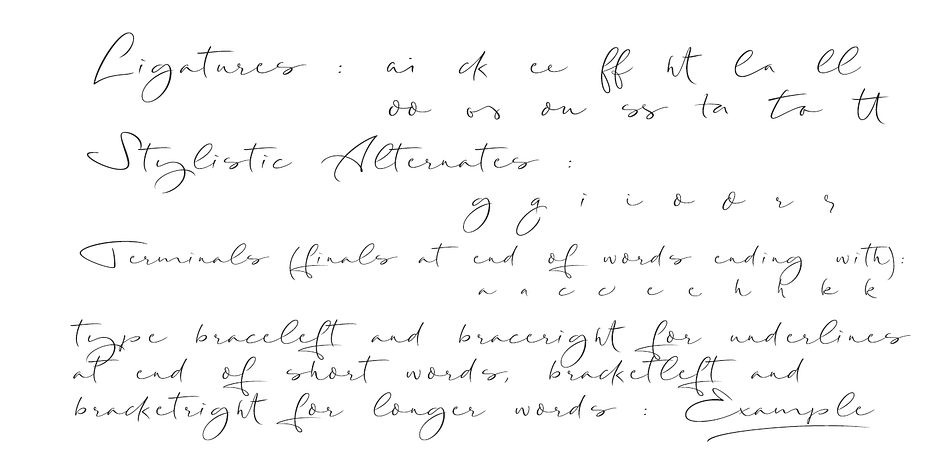 Ligatures : ai ck ee ff ht la ll
oo os on ss ta to tt
Stylistic Alternates :
g g i i o o r r
Terminals (finals at end of words ending with):
a a c c e e h h k k
type braceleft and braceright for underlines
at end of short words, bracketleft and
bracketright for longer words : Example